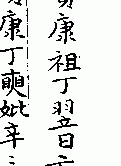 康祖丁翌日
康丁奭妣辛